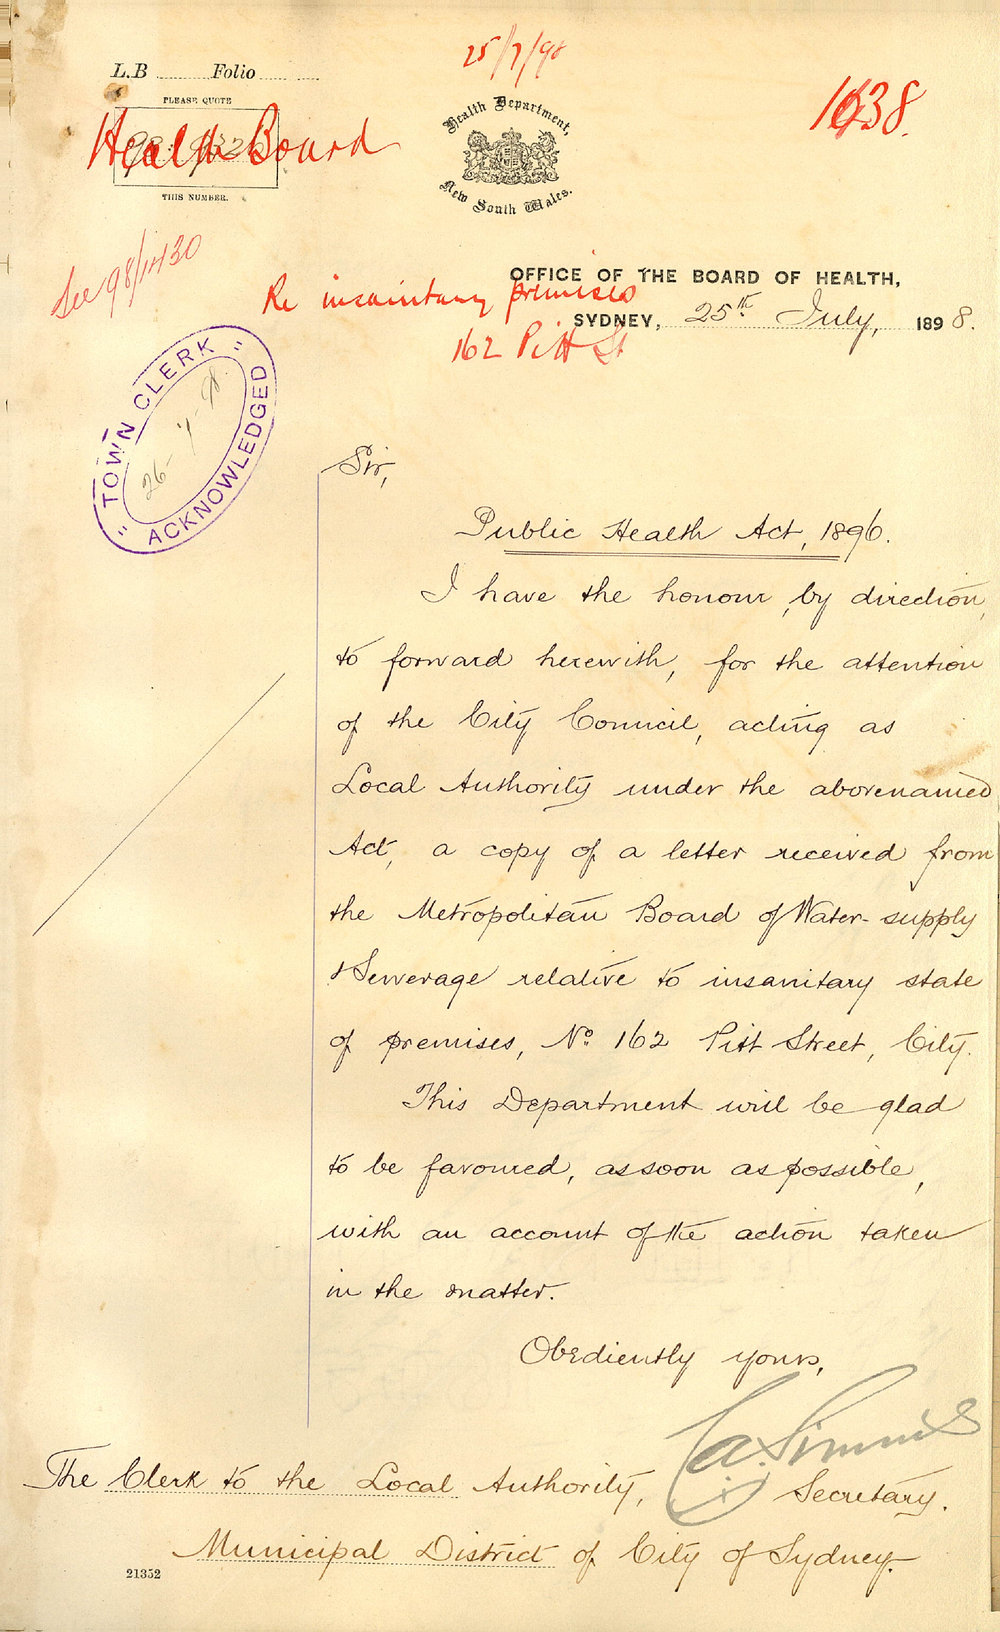 25/7/98
L.B ...... Folio ...... ....
PLEASE QUOTE
Health Board
THIS NUMBER.
Health Department,
New South Wales.
1638.
See 98/1430
OFFICE OF THE BOARD OF HEALTH,
Re insanitary premises
SYDNEY, 25th July, 1898.
162 Pitt St
"TOWN CLERK"
26-7-98
ACKNOWLEDGED
Sir,
Public Health Act, 1896.
I have the honour, by direction,
to forward herewith, for the attention
of the City Council, acting as
Local Authority under the abovenamed
Act, a copy of a letter received from
the Metropolitan Board of Water-supply
& Sewerage relative to insanitary state
of premises, No. 162 Pitt Street, City.
This Department will be glad
to be favoured, as soon as possible,
with an account of the action taken
in the matter.
Obediently yours,
The Clerk to the Local Authority,
Secretary.
Municipal District of City of Sydney.
21352